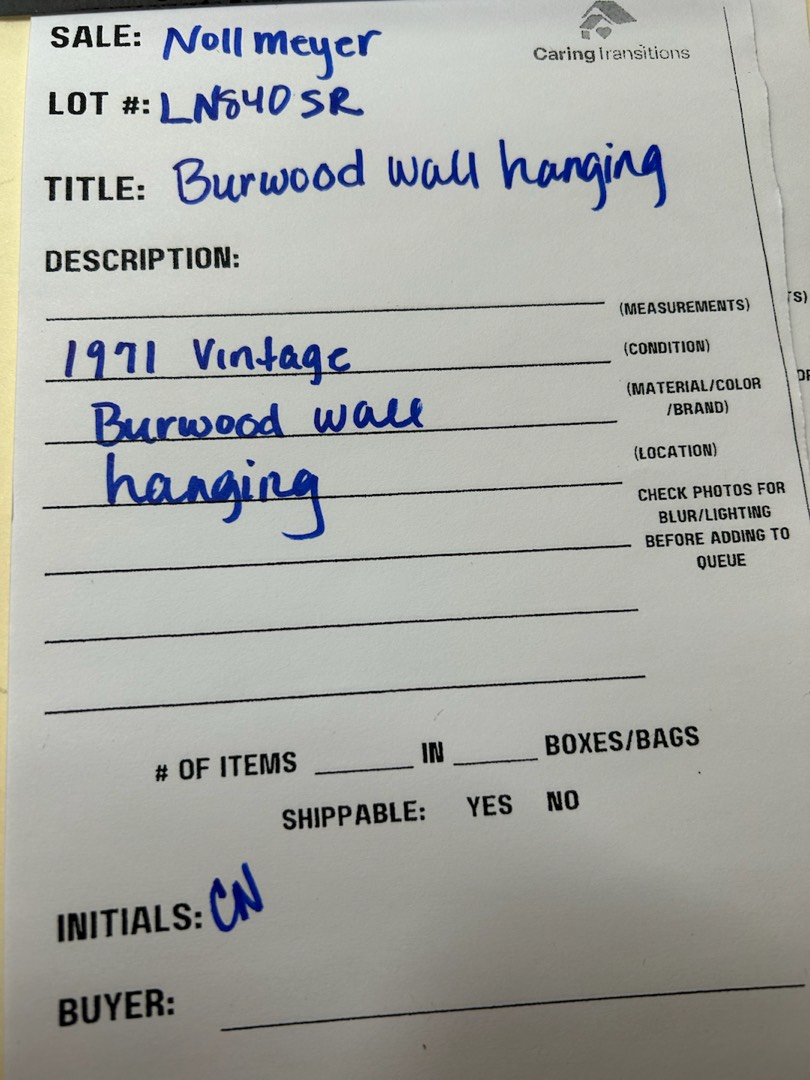 SALE: Nollmeyer
CaringTransitions
LOT #: LN840SR
TITLE: Burwood wall hanging
DESCRIPTION:
(MEASUREMENTS)
TS)
1971 Vintage
(CONDITION)
Burwood wall
(MATERIAL/COLOR
/BRAND)
hanging
(LOCATION)
CHECK PHOTOS FOR
BLUR/LIGHTING
BEFORE ADDING TO
QUEUE
# OF ITEMS ______ IN ______ BOXES/BAGS
SHIPPABLE: YES NO
INITIALS: CN
BUYER: